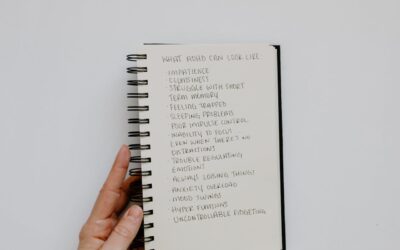 WHAT ADHD CAN LOOK LIKE
· IMPATIENCE
· CLUMSINESS
· STRUGGLE WITH SHORT
TERM MEMORY
· FEELING TRAPPED
· SLEEPING PROBLEMS
· POOR IMPULSE CONTROL
· INABILITY TO FOCUS
EVEN WHEN THERE'S NO
DISTRACTIONS
· TROUBLE REGULATING
EMOTIONS
· ALWAYS LOSING THINGS
· ANXIETY OVERLOAD
· MOOD SWINGS
· HYPER
· UNCONTROLLABLE FIDGETING